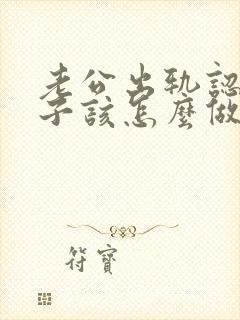 老公出軌認
子該怎麼做
符寶